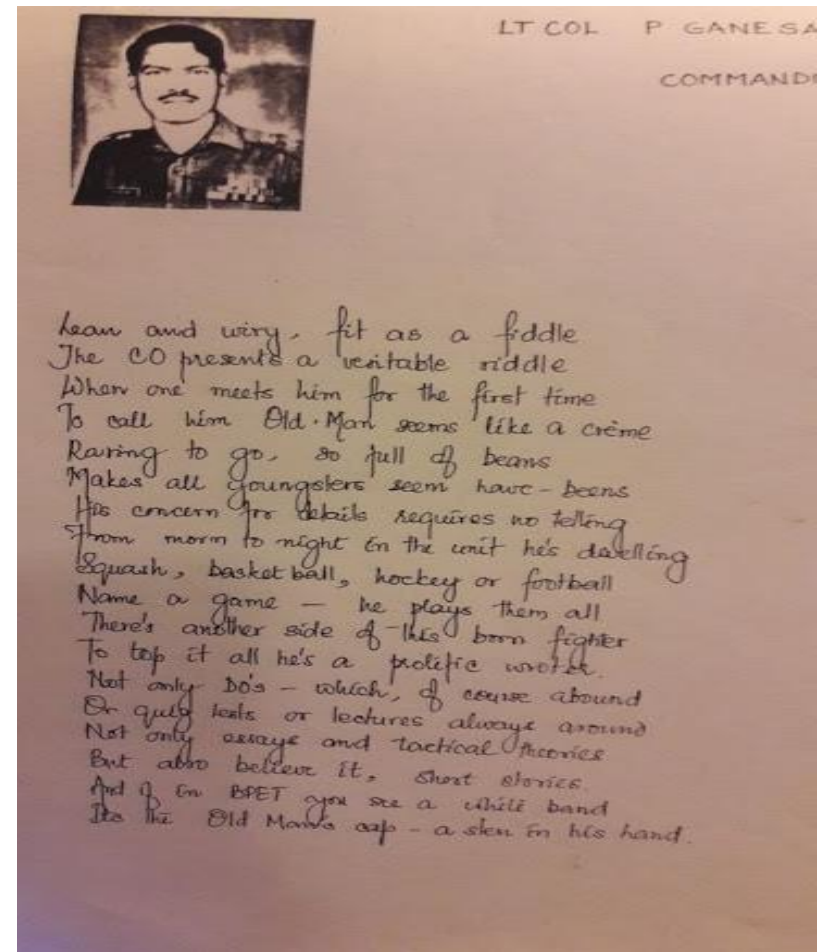 LT COL P GANESA
COMMAND
Lean and wiry, fit as a fiddle
The CO presents a veritable riddle
When one meets him for the first time
To call him Old-Man seems like a crème
Raring to go, so full of beans
Makes all youngsters seem have-beens
His concern for details requires no telling
From morn to night in the unit he's dwelling
Squash, basketball, hockey or football
Name a game – he plays them all
There's another side of this born fighter
To top it all he's a prolific writer.
Not only DO's – which, of course abound
Or quiz tests or lectures always around
Not only essays and tactical theories
But also believe it, short stories.
And if in BPET you see a white band
Its the Old Man's cap – a sten in his hand.